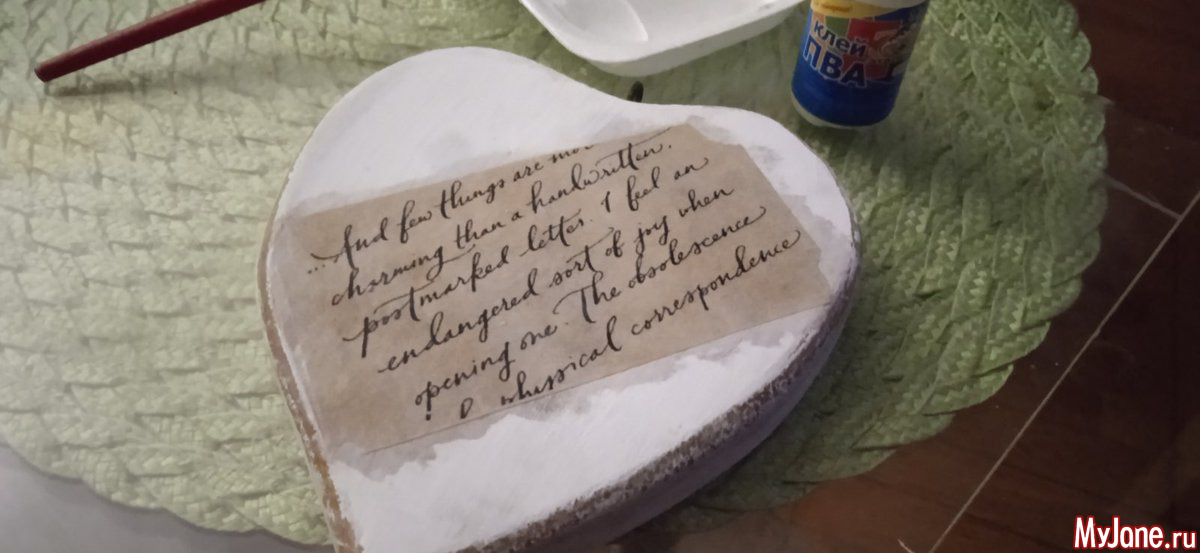 клей
ПВА
...And few things are
charming than a handwritten.
postmarked letter. I feel an
endangered sort of joy when
opening one. The obsolescence
correspondence
MyJane.ru